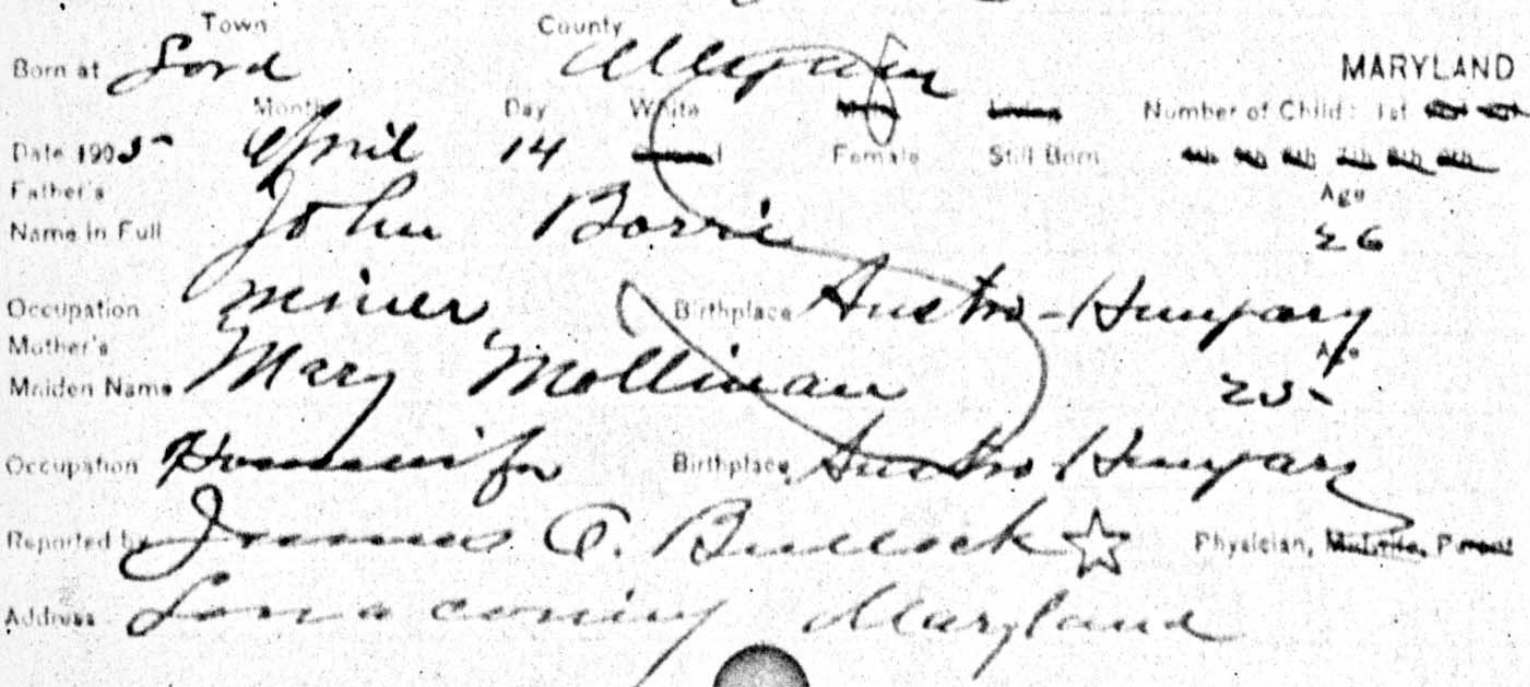 Town County
Born at Lord Allegany MARYLAND
Month Day White Male Living Number of Child: 1st 2nd 3rd
Date 1905 April 14 Female Still Born 4th 5th 6th 7th 8th 9th
Father's Age
Name in Full John Borri 26
Occupation miner Birthplace Austro-Hungary
Mother's Age
Maiden Name Mary Mollinau 25
Occupation Housewife Birthplace Austro Hungary
Reported by James O. Bullock Physician, Midwife, Parent
Address Lonaconing Maryland